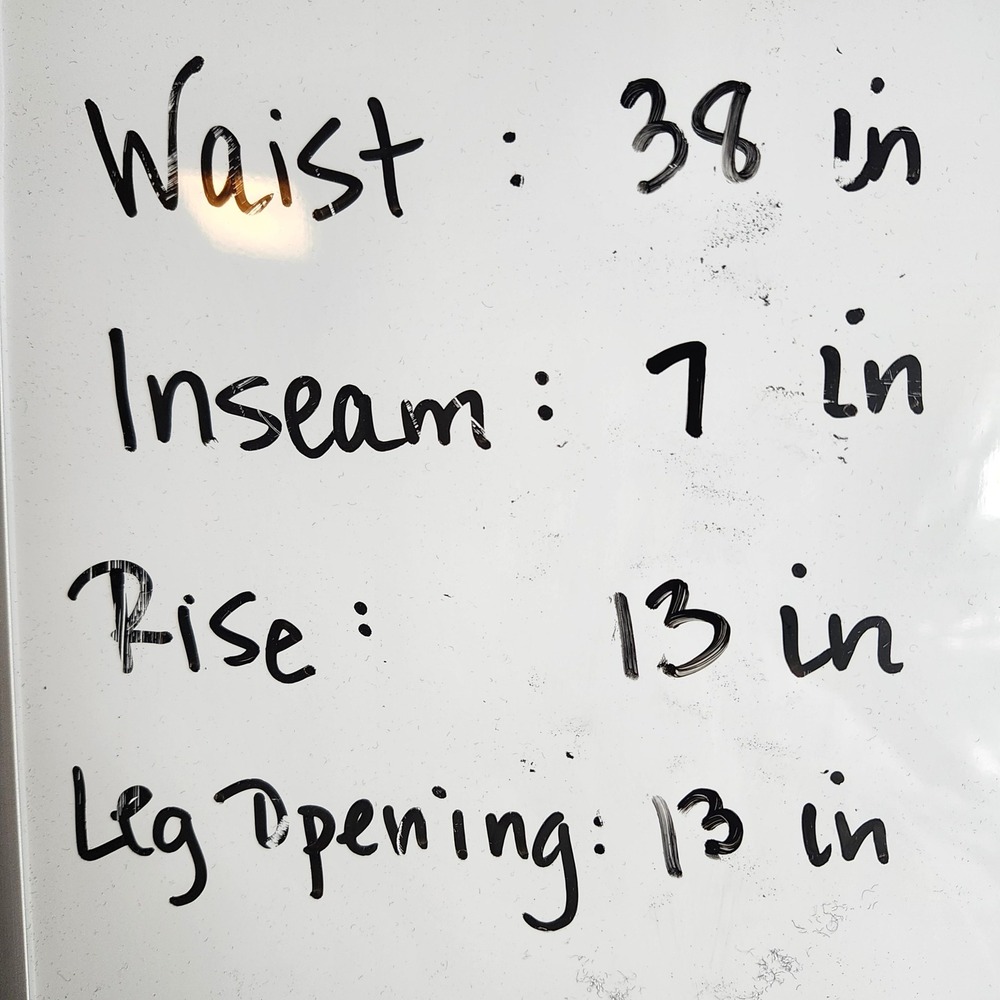 Waist : 38 in
Inseam : 7 in
Rise : 13 in
Leg Opening : 13 in